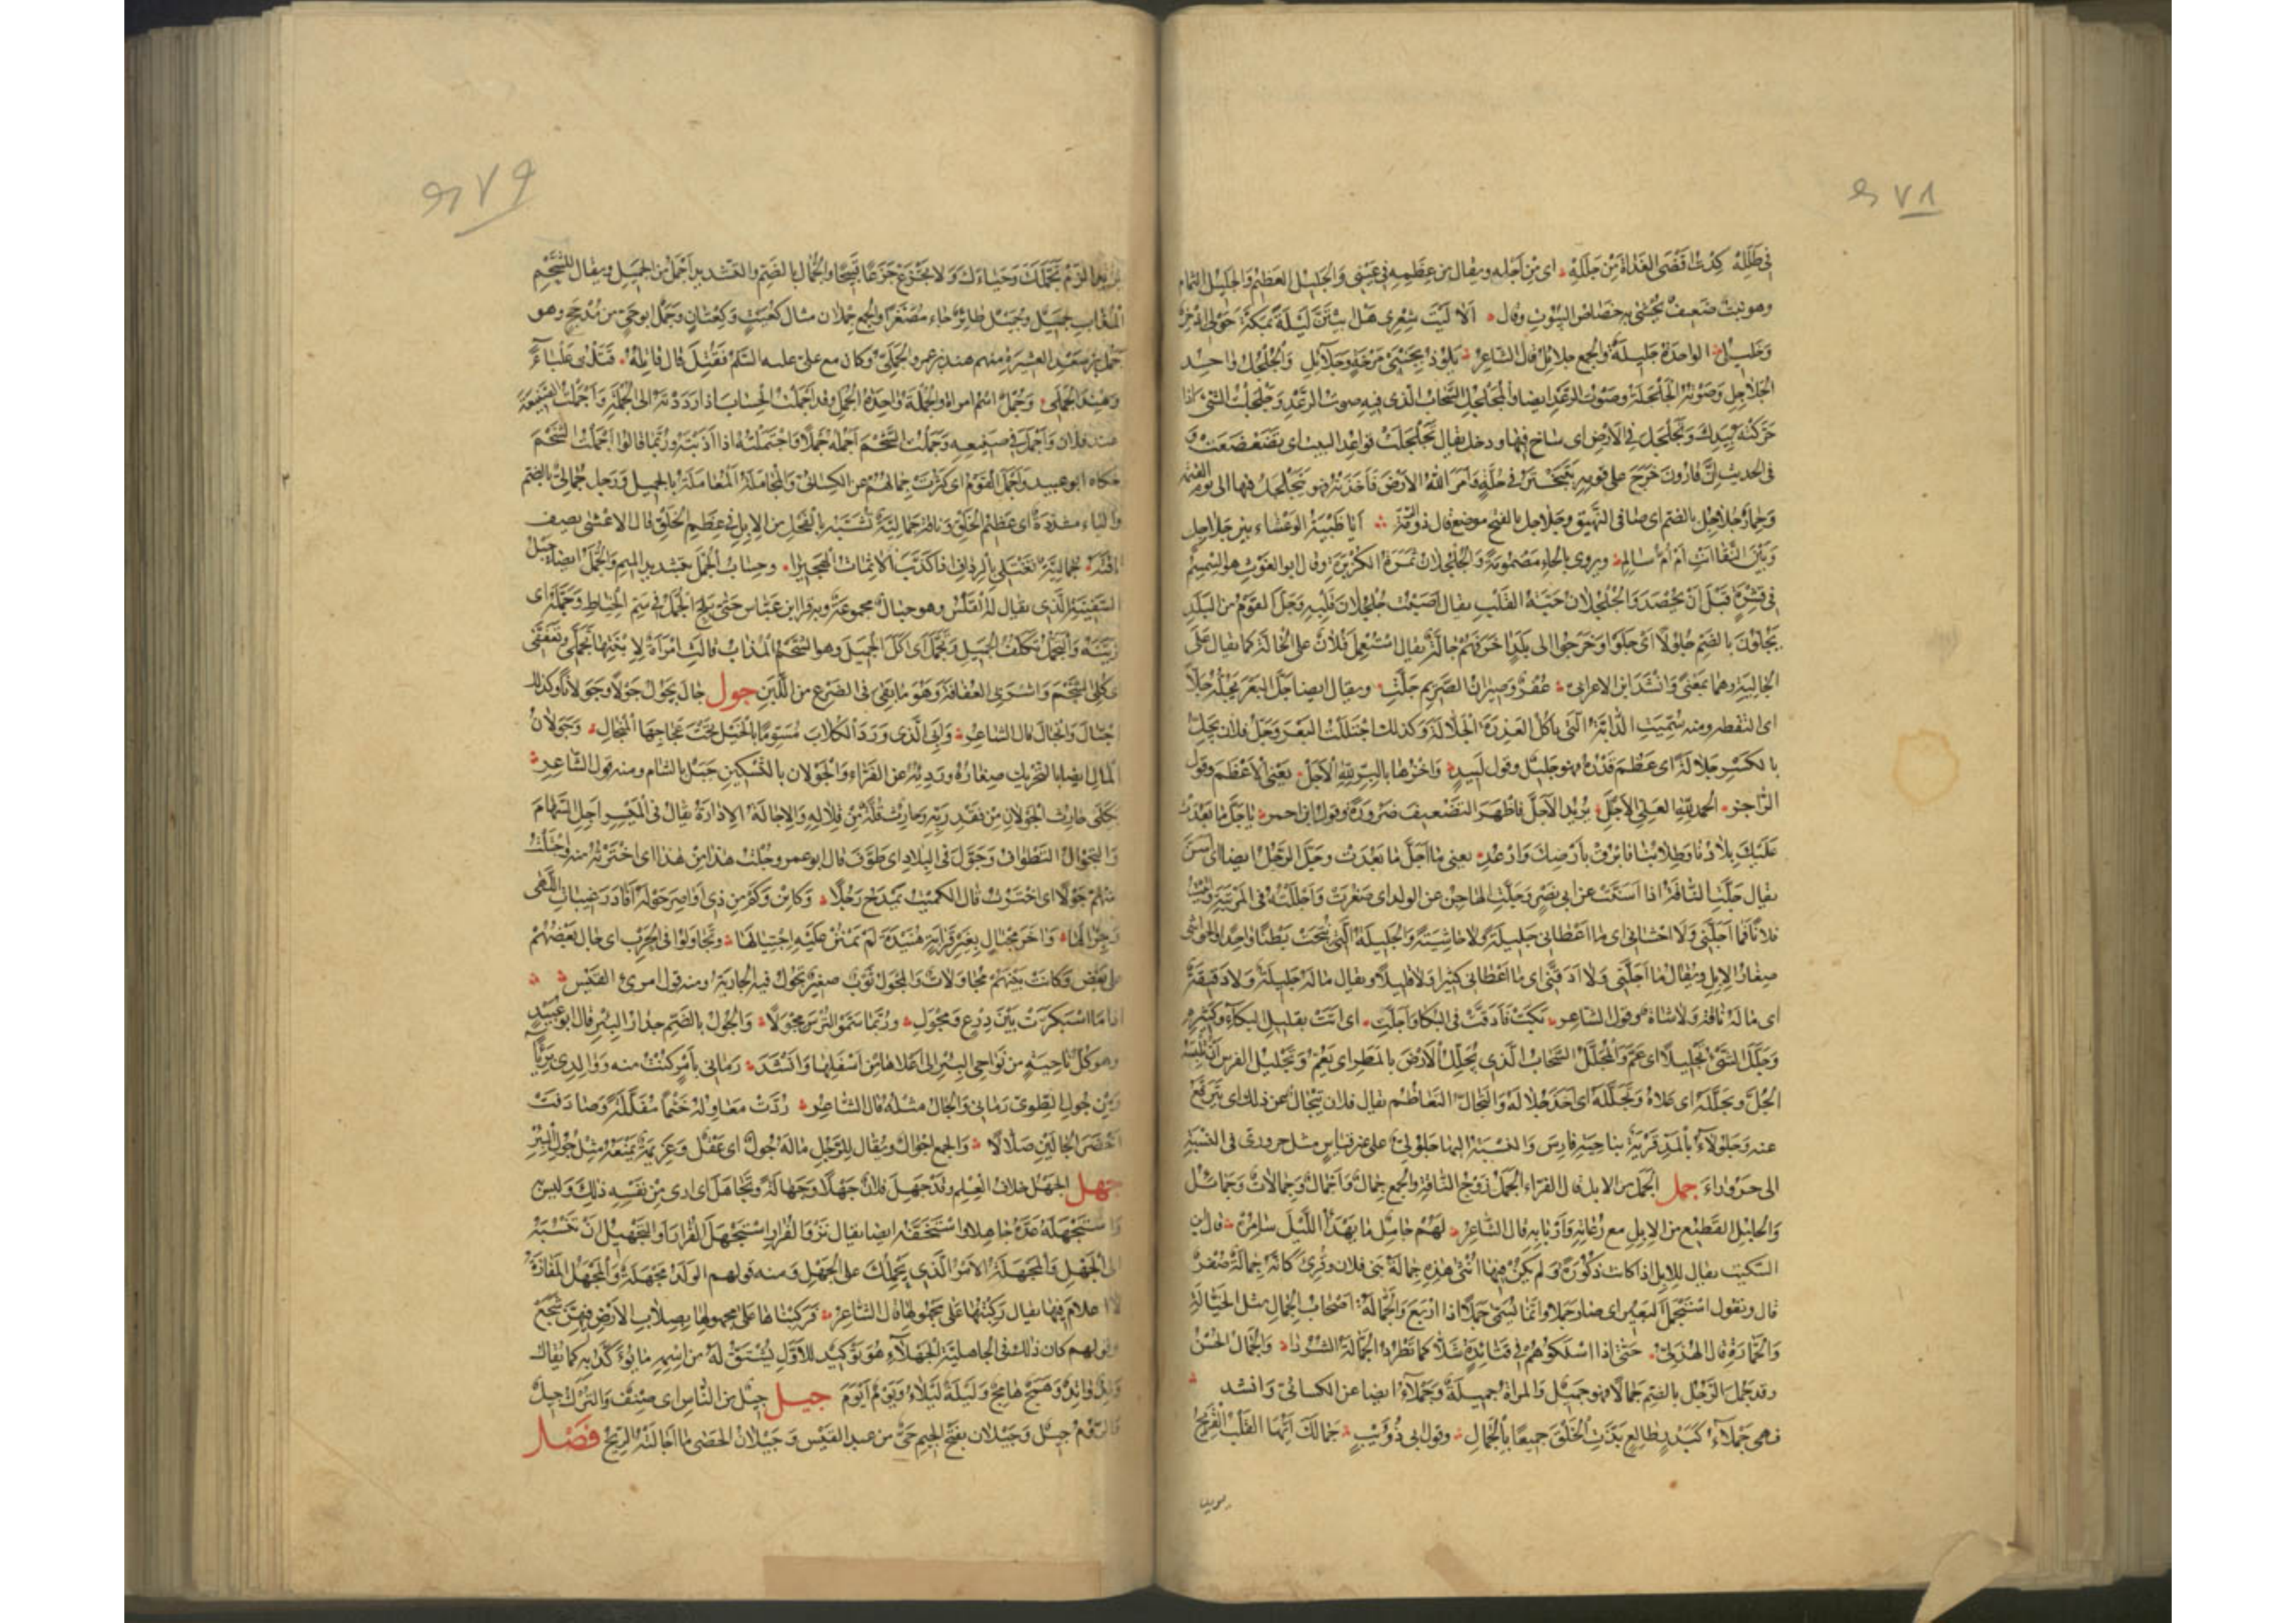 ٤٧٨
فى طلله كدت اقضى الغداة من جلله اى من اجله ويقال من عظمه فى عينى والجليل العظيم والجليل الثمام
وهو نبت ضعيف يحشى به خصاص البيوت وقال الا ليت شعرى هل ابيتن ليلة بمكة حولى اذخر
وجليل الواحدة جليلة والجمع جلائل قال الشاعر يلوذ بجنبى مرخة وجلائل والجلجل واحد
الجلاجل وصوته الجلجلة وصوت الرعد ايضا والمجلجل السحاب الذى فيه صوت الرعد وجلجلت الشئ اذا
حركته بيدك وتجلجل فى الارض اى ساخ فيها ودخل يقال تجلجلت قواعد البيت اى تضعضعت و
فى الحديث ان قارون خرج على قومه يتبختر فى حلة فامر الله الارض فاخذته فهو يتجلجل فيها الى يوم القيمة
وحمار جلاجل بالضم اى صافى النهيق وجلاجل بالفتح موضع قال ذو الرمة ايا ظبية الوعساء بين جلاجل
وبين النقا اانت ام ام سالم ويروى بالحاء مضمومة والجلجلان ثمرة الكزبرة وقال ابو الغوث هو السمسم
فى قشره قبل ان يحصد والجلجلان حبة القلب يقال اصبت جلجلان قلبه وجل القوم من البلد
يجلون بالضم جلولا اى جلوا وخرجوا الى بلد اخر فهم جالة يقال استعمل فلان على الجالة كما يقال على
الجالية وهما بمعنى وانشد ابن الاعرابى عفر وصيران الصريم جلت ويقال ايضا جل البعر يجله جلا
اى التقطه ومنه سميت الدابة التى تاكل العذرة الجلالة وكذلك اجتللت البعر وجل فلان يجل
بالكسر جلالة اى عظم قدره فهو جليل وقول لبيد واخزها بالبر لله الاجل يعنى الاعظم وقول
الراجز الحمد لله العلى الاجلل يريد الاجل فاظهر التضعيف ضرورة وقول ابن احمر يا جل ما بعدت
عليك بلادنا وطلابنا فابرق بارضك وارعد يعنى ما اجل ما بعدت وجل الرجل ايضا اى اسن
يقال جلت الناقة اذا اسنت عن ابى نصر وجلت الهاجن عن الولد اى صغرت واجللته فى المرتبة واتيت
فلانا فما اجلنى ولا احشانى اى ما اعطانى جليلة ولا حاشية والجليلة التى نتجت بطنا واحدا والحواشى
صغار الابل ويقال ما اجلنى ولا ادقنى اى ما اعطانى كثيرا ولا قليلا ويقال ماله جليلة ولا دقيقة
اى ماله ناقة ولا شاة وقول الشاعر بكت فادقت فى البكا واجلت اى اتت بقليل البكاء وكثيره
وجلل الشئ تجليلا اى عم والمجلل السحاب الذى يجلل الارض بالمطر اى يعم وتجليل الفرس ان تلبسه
الجل وتجلله اى علاه وتجلله اى اخذ جلاله والتجال التعاظم يقال فلان يتجال عن ذلك اى يترفع
عنه وجلولاء بالمد قرية بناحية فارس والنسبة اليها جلولى على غير قياس مثل حرورى فى النسبة
الى حروراء جمل الجمل من الابل قال الفراء الجمل زوج الناقة والجمع جمال واجمال وجمالات وجمائل
والجامل القطيع من الابل مع رعاته واربابه قال الشاعر لهم جامل ما يهدأ الليل سامره قال ابن
السكيت يقال للابل اذا كانت ذكورة ولم يكن فيها انثى هذه جمالة بنى فلان وقرئ كانه جمالة صفر
قال وتقول استجمل البعير اى صار جملا وانما يسمى جملا اذا اربع والجمالة اصحاب الجمال مثل الخيالة
والحمارة قال الهذلى حتى اذا اسلكوهم فى قتائدة شلا كما تطرد الجمالة الشردا والجمال الحسن
وقد جمل الرجل بالضم جمالا فهو جميل والمراة جميلة وجملاء ايضا عن الكسائى وانشد
فهى جملاء كبدر طالع بذت الخلق جميعا بالجمال وقول ابى ذؤيب جمالك ايها القلب القريح
٤٧٩
الزم تجملك وحياءك ولا تجزع جزعا قبيحا والجمال بالضم والتشديد اجمل من الجميل ويقال للشحم
المذاب جميل وجميل طائر جاء مصغرا والجمع جملان مثال كعيت وكعتان وجمل ابو حى من مذحج وهو
جمل بن سعد العشيرة منهم هند بن عمرو الجملى وكان مع على عليه السلم فقتل قال قاتله قتلت علباء
وهند الجملى وجمل اسم امراة والجملة واحدة الجمل وقد اجملت الحساب اذا رددته الى الجملة واجملت الصنيعة
عند فلان واجمل فى صنيعه وجملت الشحم اجمله جملا واجتملته اذا اذبته وربما قالوا اجملت الشحم
حكاه ابو عبيد واجمل القوم اى كثرت جمالهم عن الكسائى والمجاملة المعاملة بالجميل ورجل جمالى بالضم
والياء مشددة اى عظيم الخلق وناقة جمالية تشبه بالفحل من الابل فى عظم الخلق قال الاعشى يصف
ناقته جمالية تغتلى بالرداف اذا كذب الاثمات الهجيرا وحساب الجمل بتشديد الميم والجمل ايضا حبل
السفينة الذى يقال له القلس وهو حبال مجموعة وبه قرا ابن عباس حتى يلج الجمل فى سم الخياط وجمله اى
زينه والتجمل تكلف الجميل وتجمل اى اكل الجميل وهو الشحم المذاب قالت امراة لابنتها تجملى وتعففى
اى كلى الشحم واشربى العفافة وهو ما بقى فى الضرع من اللبن جول جال يجول جولا وجولانا وكذلك
اجتال وانجال قال الشاعر وابى الذى ورد الكلاب مسوما بالخيل تحت عجاجها المنجال وجولان
المال ايضا بالتحريك صغاره ورديئه عن الفراء والجولان بالتسكين جبل بالشام ومنه قول الشاعر
بكى حارث الجولان من فقد ربه وحارث قلة من قلاله والاجالة الادارة يقال فى الميسر اجل السهام
والتجوال التطواف وجول فى البلاد اى طوف قال ابو عمرو وجلت هذا من هذا اى اخترته منه واجتلت
منهم جولا اى اخترت قال الكميت يمدح رجلا وكائن وكم من ذى اواصر حوله افاد رغيبات اللهى
وجزالها واخر مجتال بغير قرابة هنيدة لم يمنن عليه اجتيالها وتجاولوا فى الحرب اى جال بعضهم
على بعض وكانت بينهم مجاولات والمجول ثوب صغير تجول فيه الجارية ومنه قول امرئ القيس
اذا ما اسبكرت بين درع ومجول وربما سموا الترس مجولا والجول بالضم جدار البئر قال ابو عبيد
وهو كل ناحية من نواحى البئر الى اعلاها من اسفلها وانشد رمانى بامر كنت منه ووالدى بريا
ومن جول الطوى رمانى والجال مثله قال الشاعر ردت معاوله خثما مفللة وصادفت
اخضر الجالين صلالا والجمع اجوال ويقال للرجل ماله جول اى عقل وعزيمة تمنعه مثل جول البئر
جهل الجهل خلاف العلم وقد جهل فلان جهلا وجهالة وتجاهل اى ارى من نفسه ذلك وليس
واستجهله عده جاهلا واستخفه ايضا يقال نزو الفرار استجهل الفرار والتجهيل ان تنسبه
الى الجهل والمجهلة الامر الذى يحملك على الجهل ومنه قولهم الولد مجهلة والمجهل المفازة
لا اعلام فيها يقال ركبتها على مجهولها قال الشاعر فركبناها على مجهولها بصلاب الارض فيهن شجع
وقولهم كان ذلك فى الجاهلية الجهلاء هو توكيد للاول يشتق له من اسمه ما يؤكد به كما يقال
وتد واتد وهمج هامج وليلة ليلاء ويوم ايوم جيل جيل من الناس اى صنف والترك جيل
والروم جيل وجيلان بفتح الجيم حى من عبد القيس وجيلان الحصى ما اجالته الريح فصل